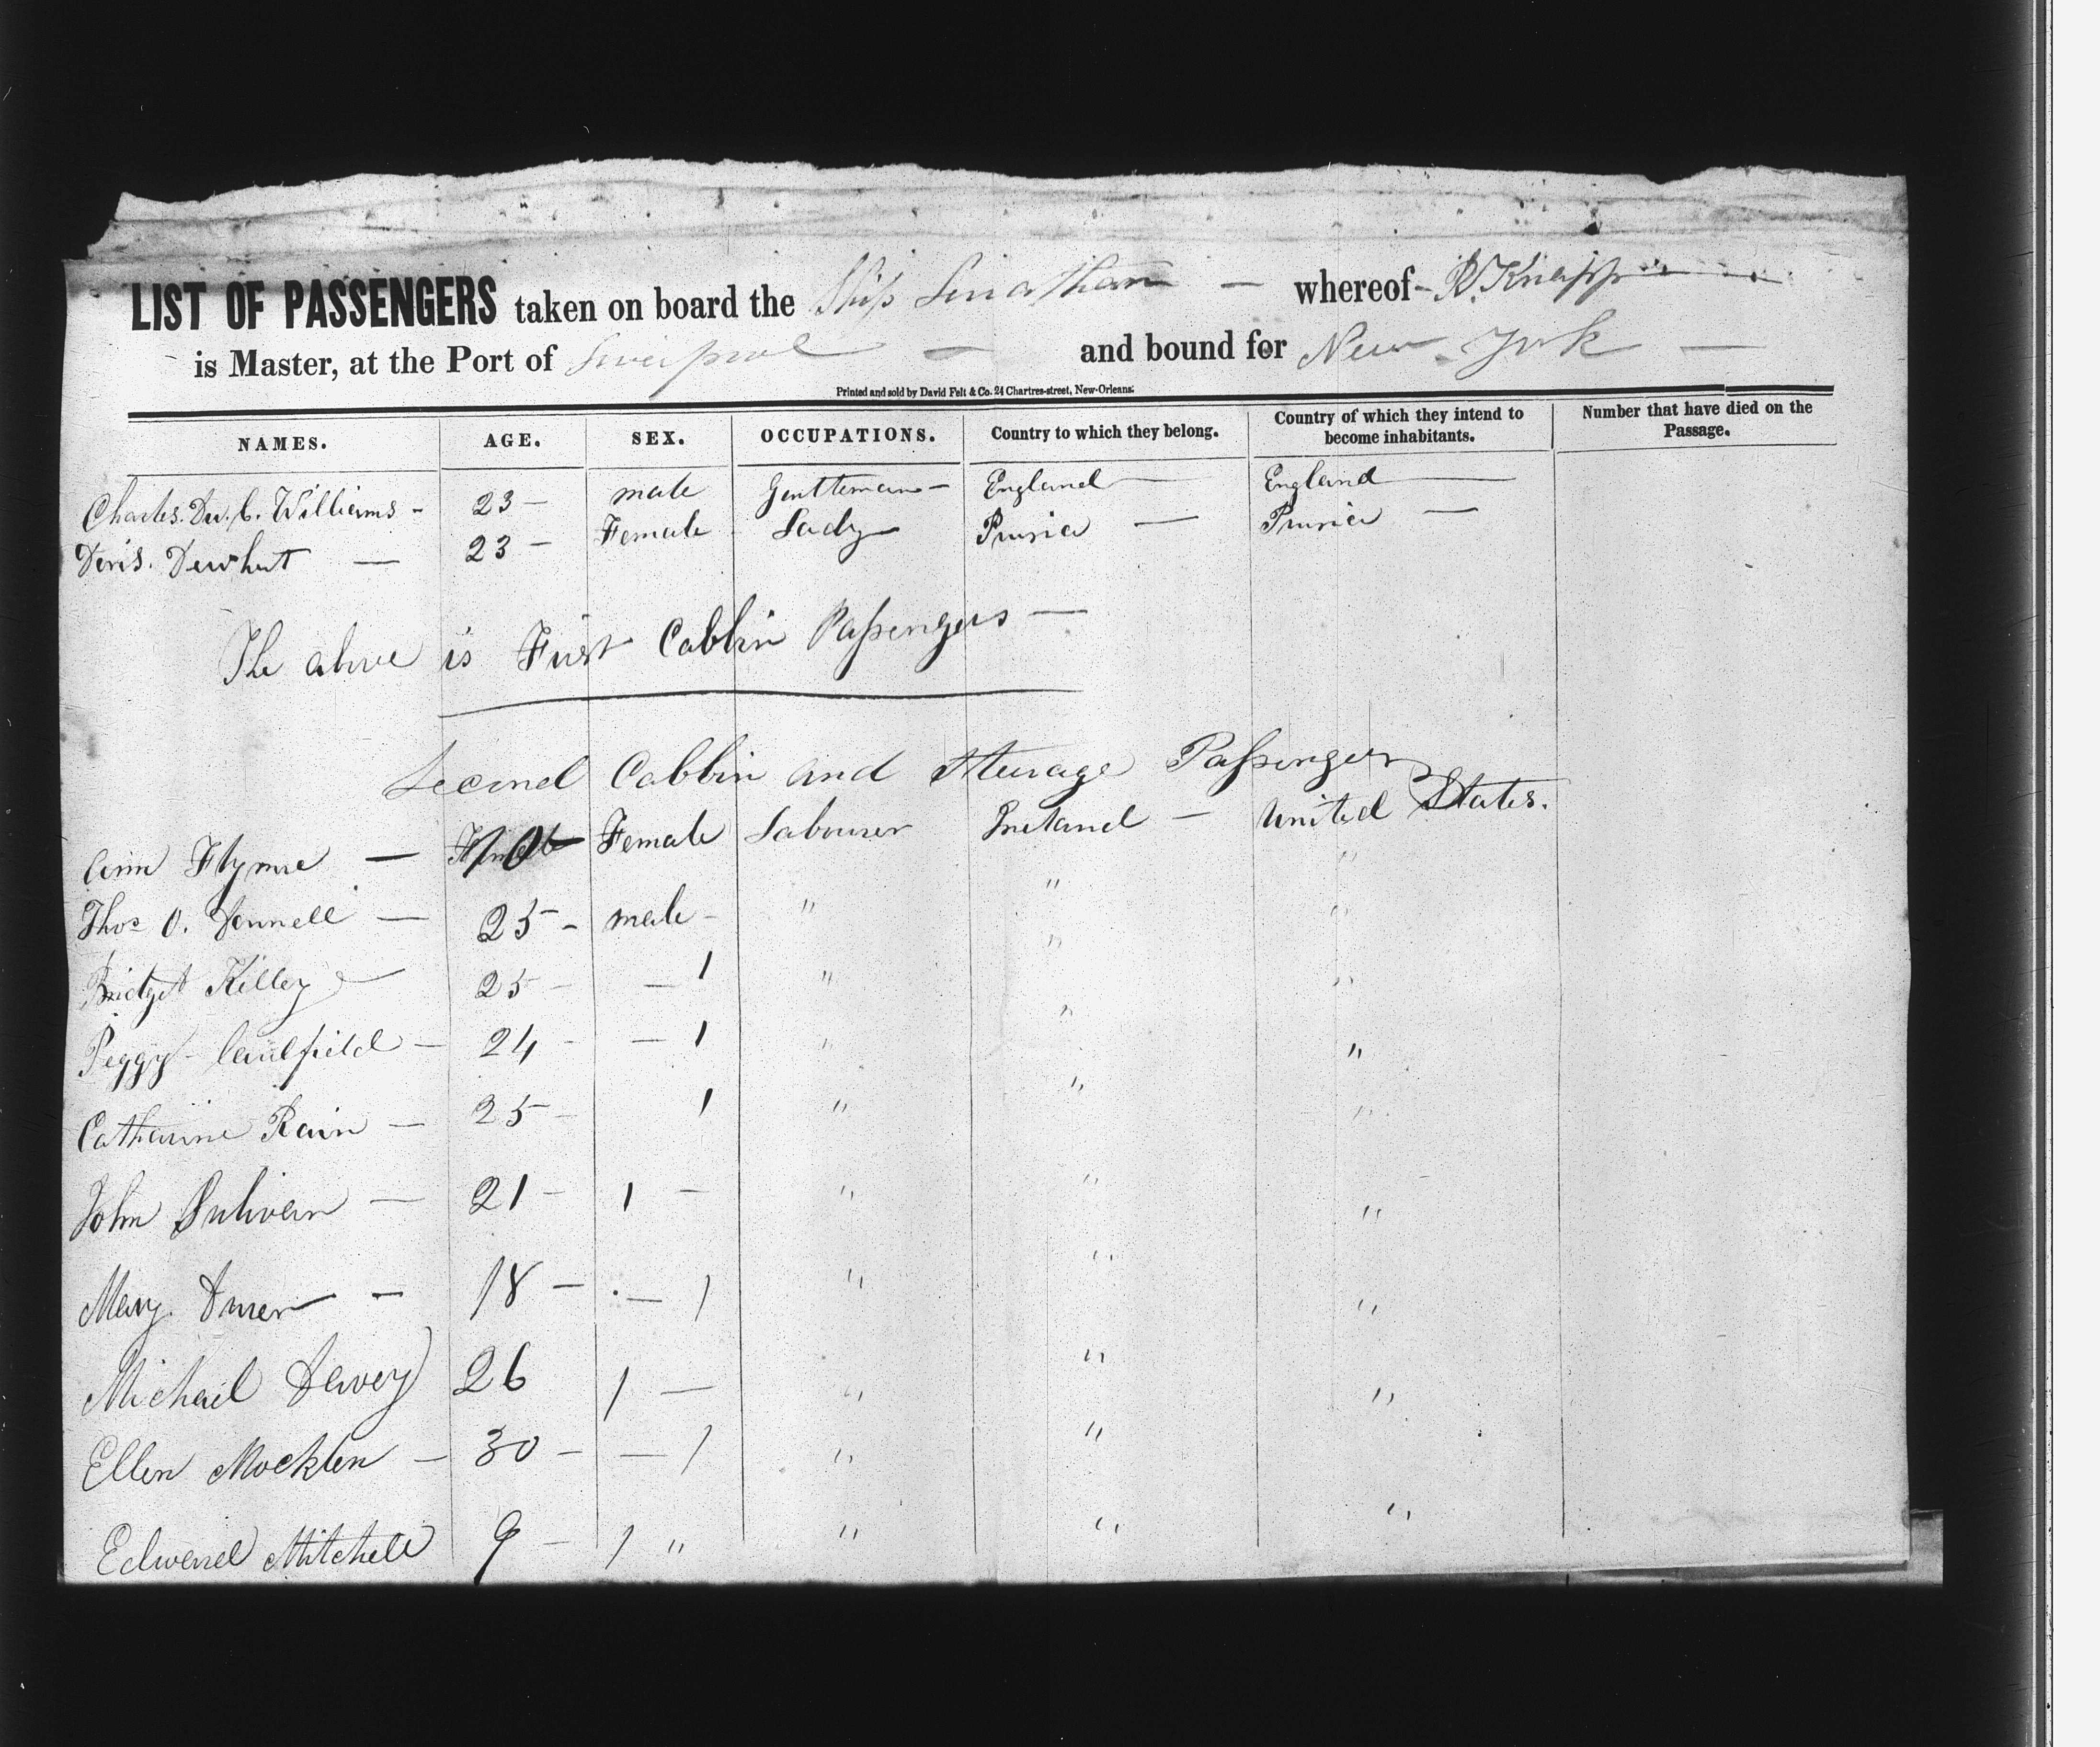 LIST OF PASSENGERS taken on board the Ship Liverpool whereof R. Knapp
is Master, at the Port of Liverpool and bound for New York
Printed and sold by David Felt & Co. 24 Chartres-street, New-Orleans.
NAMES. AGE. SEX. OCCUPATIONS. Country to which they belong. Country of which they intend to become inhabitants. Number that have died on the Passage.
Charles. Williams - 23 - male Gentleman - England — England —
Dewhut — 23 - Female Lady Prusia — Prusia —
The above is First Cabbin Passengers —
Second Cabbin and Sterage Passengers
Ann Flynne — 70 Female Labourer Ireland — United States.
Thos O. Donnell — 25 - male - " " "
Bridget Killey — 25 - — 1 " " "
Peggy Caulfield — 24 - — 1 " " "
Catharine Rain — 25 - 1 " " "
John Sulivan — 21 - 1 — " " "
Mary — 18 - — 1 " " "
Michael Davey 26 1 — " " "
Ellen Mocklen — 30 - — 1 " " "
Edward Mitchell 9 - 1 " " " "